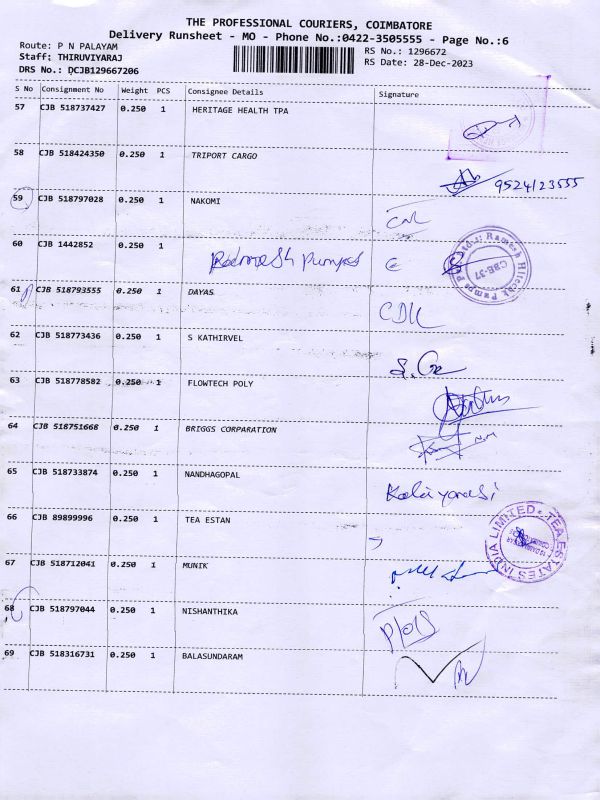 THE PROFESSIONAL COURIERS, COIMBATORE
Delivery Runsheet - MO - Phone No.:0422-3505555 - Page No.:6
Route: P N PALAYAM
RS No.: 1296672
Staff: THIRUVIYARAJ
RS Date: 28-Dec-2023
DRS No.: DCJB129667206
S No Consignment No Weight PCS Consignee Details Signature
57 CJB 518737427 0.250 1 HERITAGE HEALTH TPA
58 CJB 518424350 0.250 1 TRIPORT CARGO
9524123555
59 CJB 518797028 0.250 1 NAKOMI
60 CJB 1442852 0.250 1
Ramesh Hitech Pumps
CBE-37
61 CJB 518793555 0.250 1 DAYAS
62 CJB 518773436 0.250 1 S KATHIRVEL
63 CJB 518778582 0.250 1 FLOWTECH POLY
64 CJB 518751668 0.250 1 BRIGGS CORPARATION
65 CJB 518733874 0.250 1 NANDHAGOPAL
66 CJB 89899996 0.250 1 TEA ESTAN
TEA ESTATES INDIA LIMITED
67 CJB 518712041 0.250 1 MUNIK
68 CJB 518797044 0.250 1 NISHANTHIKA
69 CJB 518316731 0.250 1 BALASUNDARAM